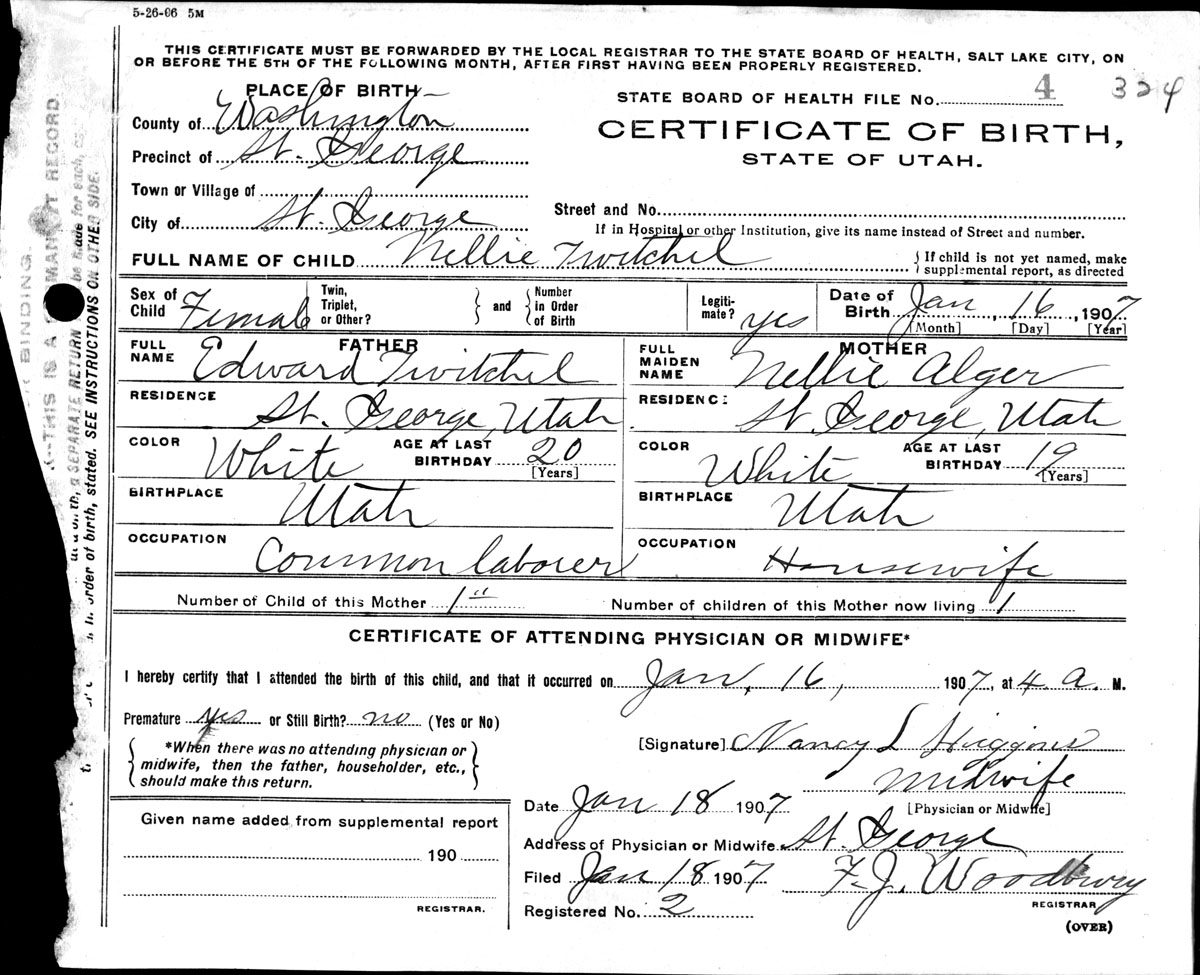 5-26-06 5M
THIS CERTIFICATE MUST BE FORWARDED BY THE LOCAL REGISTRAR TO THE STATE BOARD OF HEALTH, SALT LAKE CITY, ON
OR BEFORE THE 5TH OF THE FOLLOWING MONTH, AFTER FIRST HAVING BEEN PROPERLY REGISTERED.
PLACE OF BIRTH—
STATE BOARD OF HEALTH FILE No. 4 324
County of Washington
CERTIFICATE OF BIRTH,
Precinct of St. George
STATE OF UTAH.
Town or Village of
City of St. George
Street and No.
If in Hospital or other Institution, give its name instead of Street and number.
FULL NAME OF CHILD Nellie Twitchel
{ If child is not yet named, make
supplemental report, as directed
Sex of Child Female
Twin, Triplet, or Other? } and { Number in Order of Birth
Legiti-mate? yes
Date of Birth Jan 16, 1907
[Month] [Day] [Year]
FATHER
FULL NAME Edward Twitchel
RESIDENCE St. George, Utah
COLOR White AGE AT LAST BIRTHDAY 20 [Years]
BIRTHPLACE Utah
OCCUPATION Common laborer
MOTHER
FULL MAIDEN NAME Nellie Alger
RESIDENCE St. George, Utah
COLOR White AGE AT LAST BIRTHDAY 19 [Years]
BIRTHPLACE Utah
OCCUPATION Housewife
Number of Child of this Mother 1st Number of children of this Mother now living 1
CERTIFICATE OF ATTENDING PHYSICIAN OR MIDWIFE*
I hereby certify that I attended the birth of this child, and that it occurred on Jan, 16, 1907, at 4 a. M.
Premature yes or Still Birth? no (Yes or No)
*When there was no attending physician or
midwife, then the father, householder, etc.,
should make this return.
[Signature] Nancy L Higgins
Midwife
[Physician or Midwife]
Date Jan 18 1907
Address of Physician or Midwife St. George
Filed Jan 18 1907 F. J. Woodbury
REGISTRAR
Registered No. 2
(OVER)
Given name added from supplemental report
190
REGISTRAR.
BINDING
THIS IS A RECORD.
a SEPARATE RETURN be made for each,
order of birth, stated. SEE INSTRUCTIONS ON OTHER SIDE.